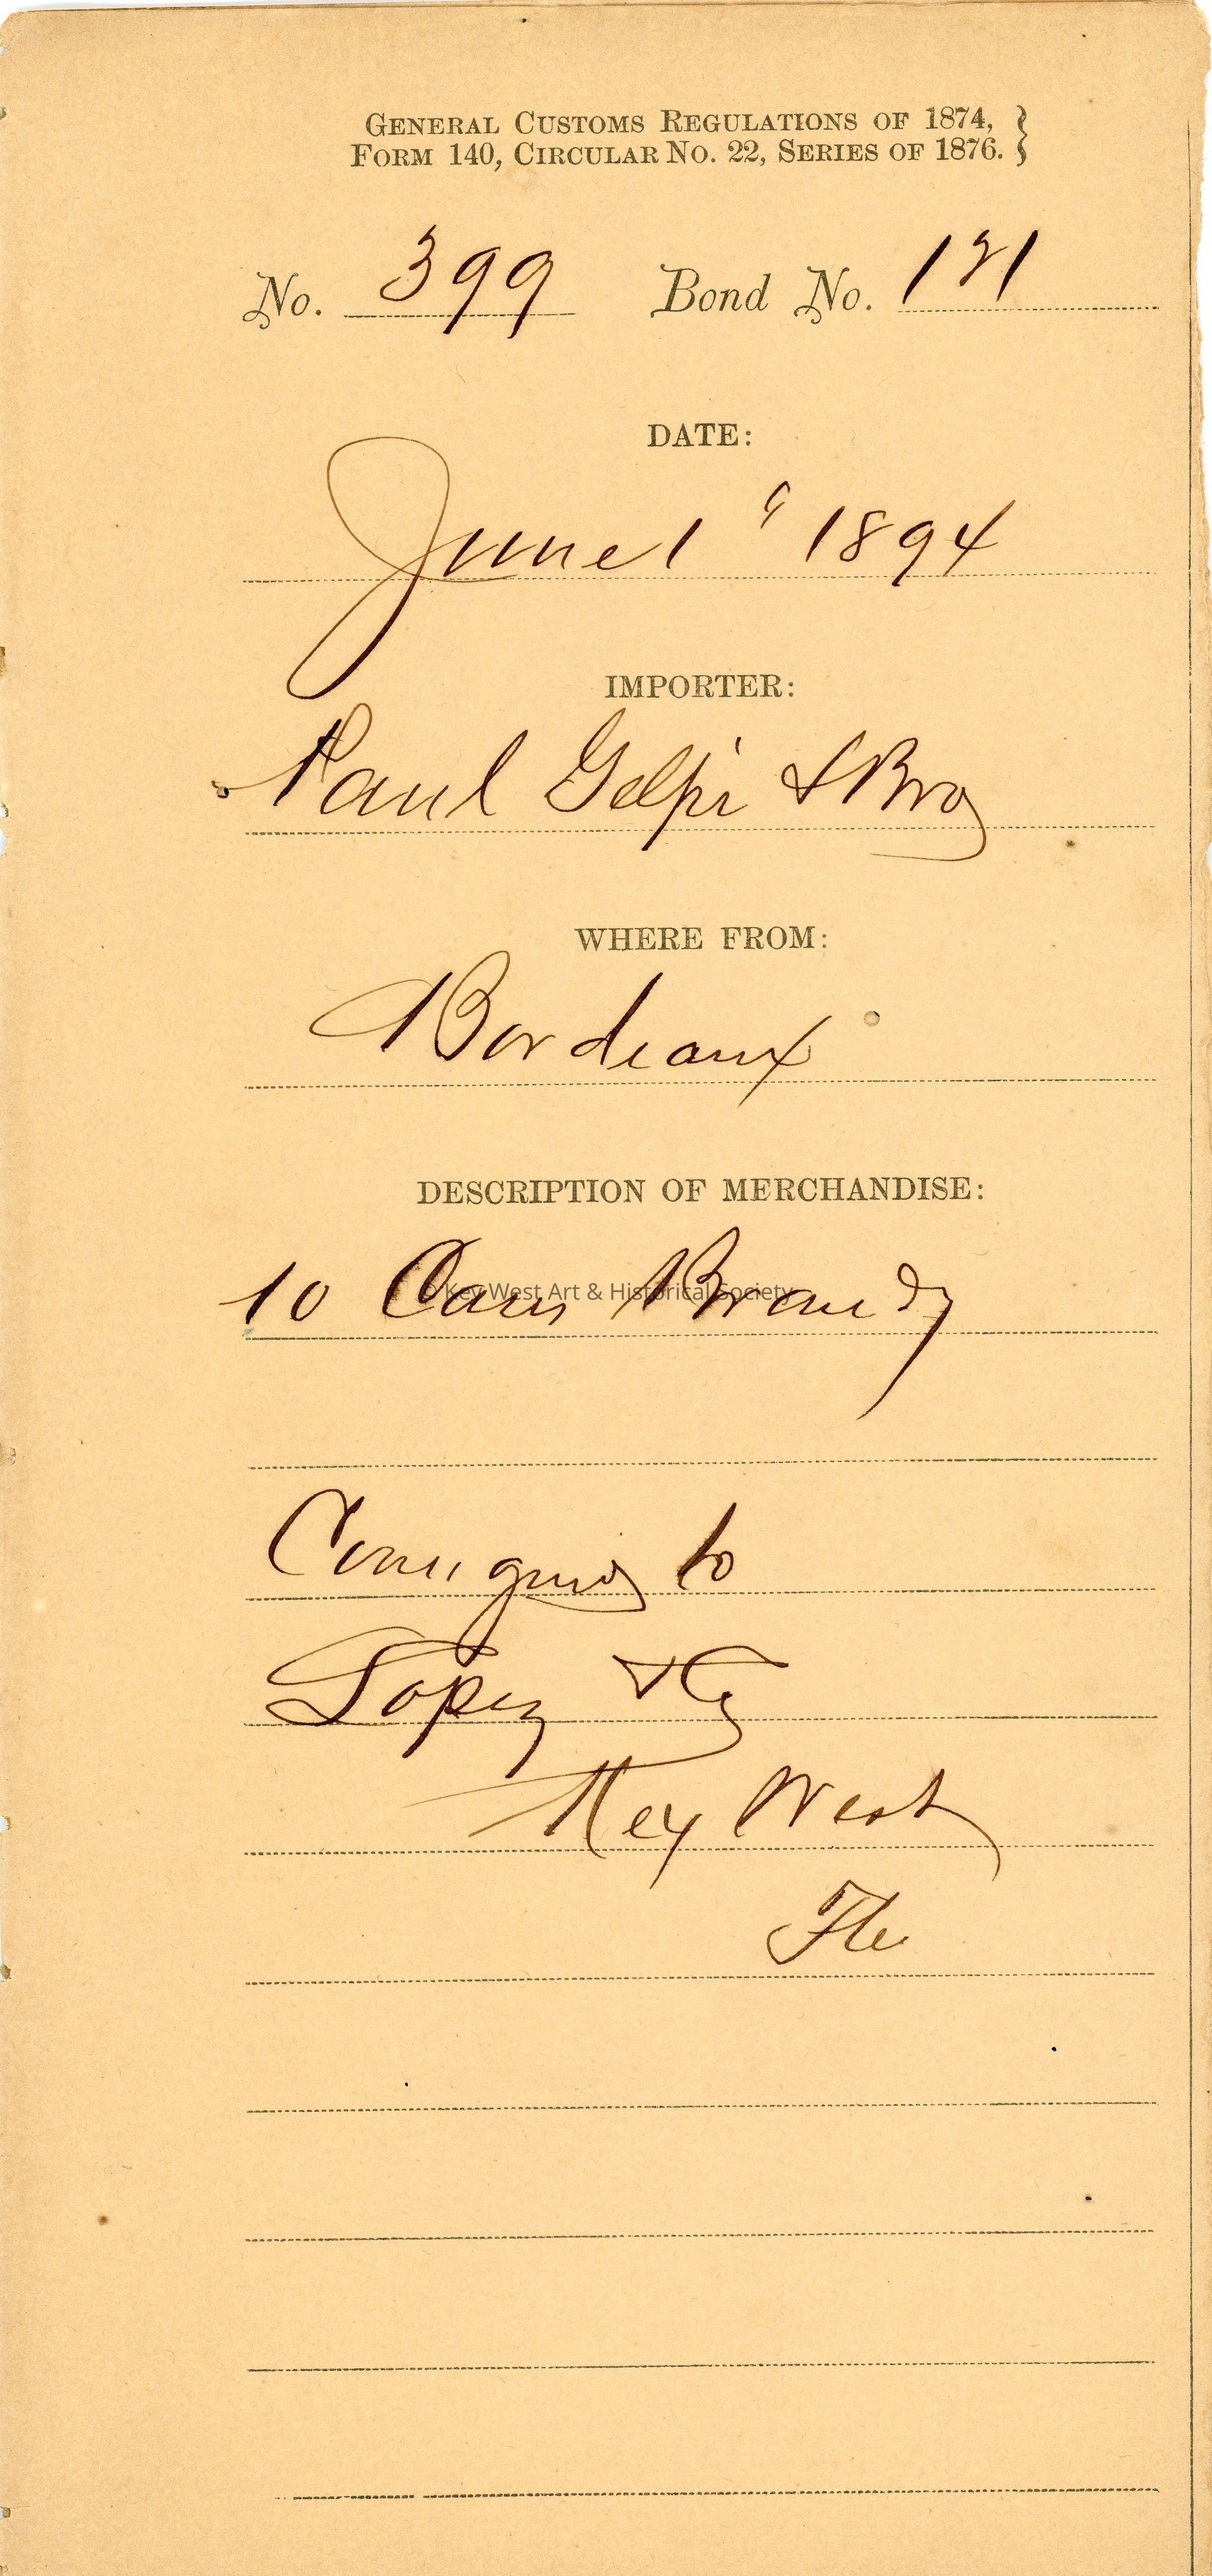 GENERAL CUSTOMS REGULATIONS OF 1874,
FORM 140, CIRCULAR NO. 22, SERIES OF 1876.
No. 399 Bond No. 121
DATE:
June 1" 1894
IMPORTER:
Paul Gelpi & Bro
WHERE FROM:
Bordeaux
DESCRIPTION OF MERCHANDISE:
10 Brandy
© Key West Art & Historical Society
to
Lopez & Co
Key West
Fla